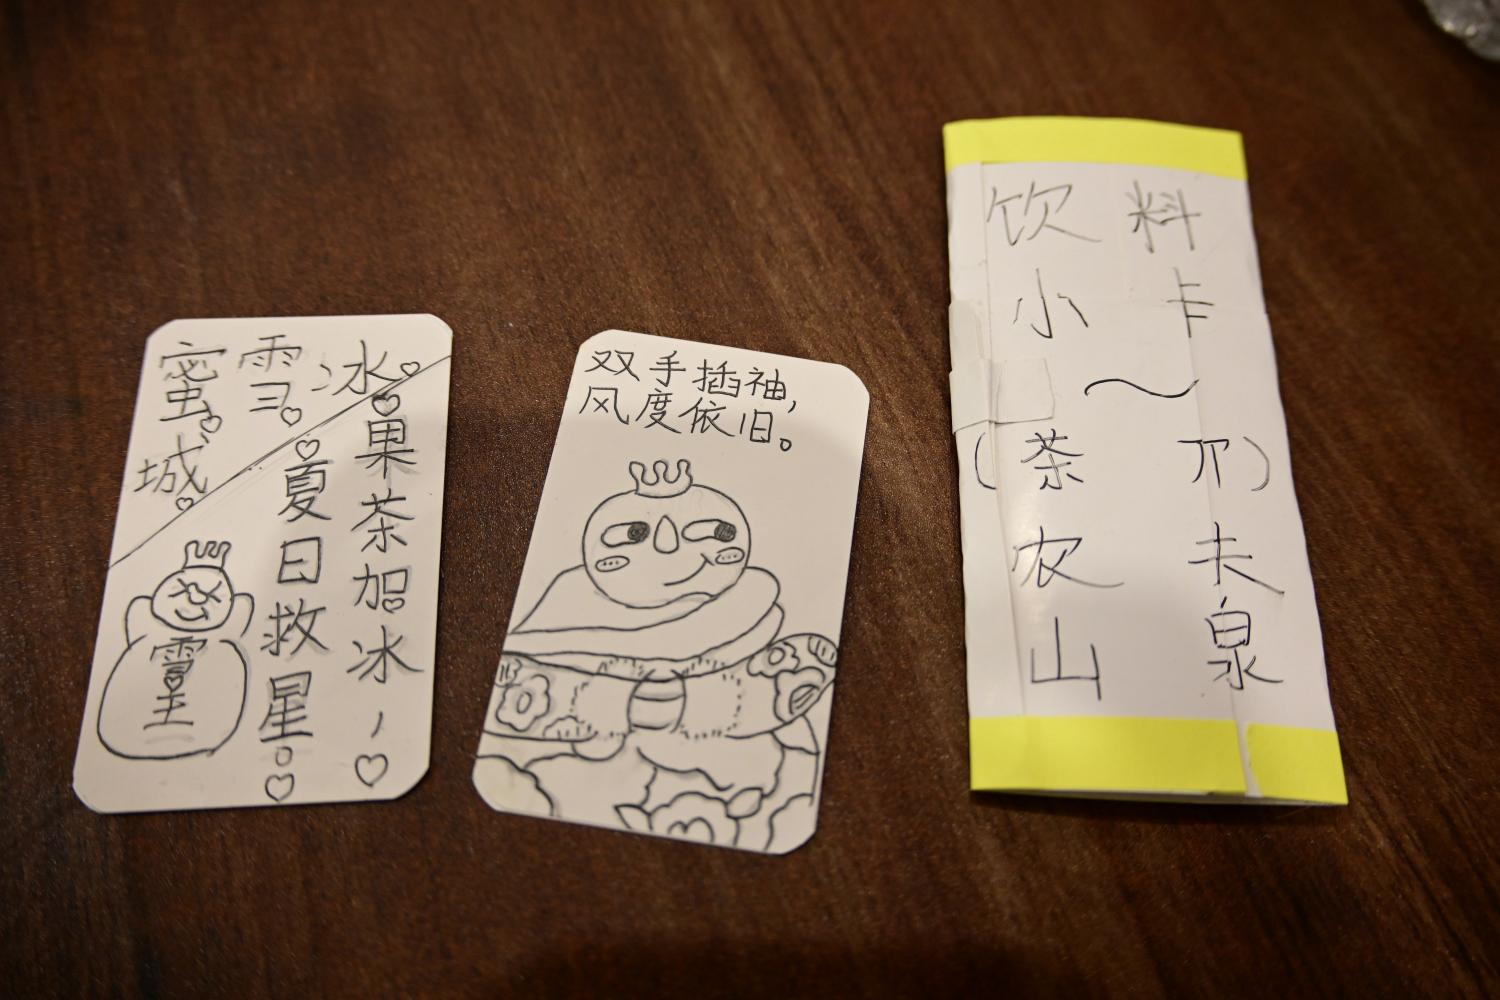 蜜雪冰城
果茶加冰，
夏日救星。
雪王
双手插袖，
风度依旧。
饮料
小卡
～
(茶
农夫
山泉